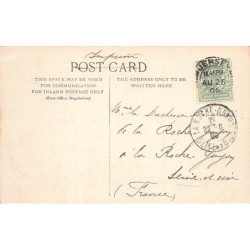 Imprimé
POST CARD
THIS SPACE MAY BE USED
FOR COMMUNICATION
FOR INLAND POSTAGE ONLY
(Post Office Regulations)
THE ADDRESS ONLY TO BE
WRITTEN HERE
JERSEY
AU 26
06
Mme la Duchesse
de la Roche Guyon
à la Roche Guyon
Seine et Oise
(France)